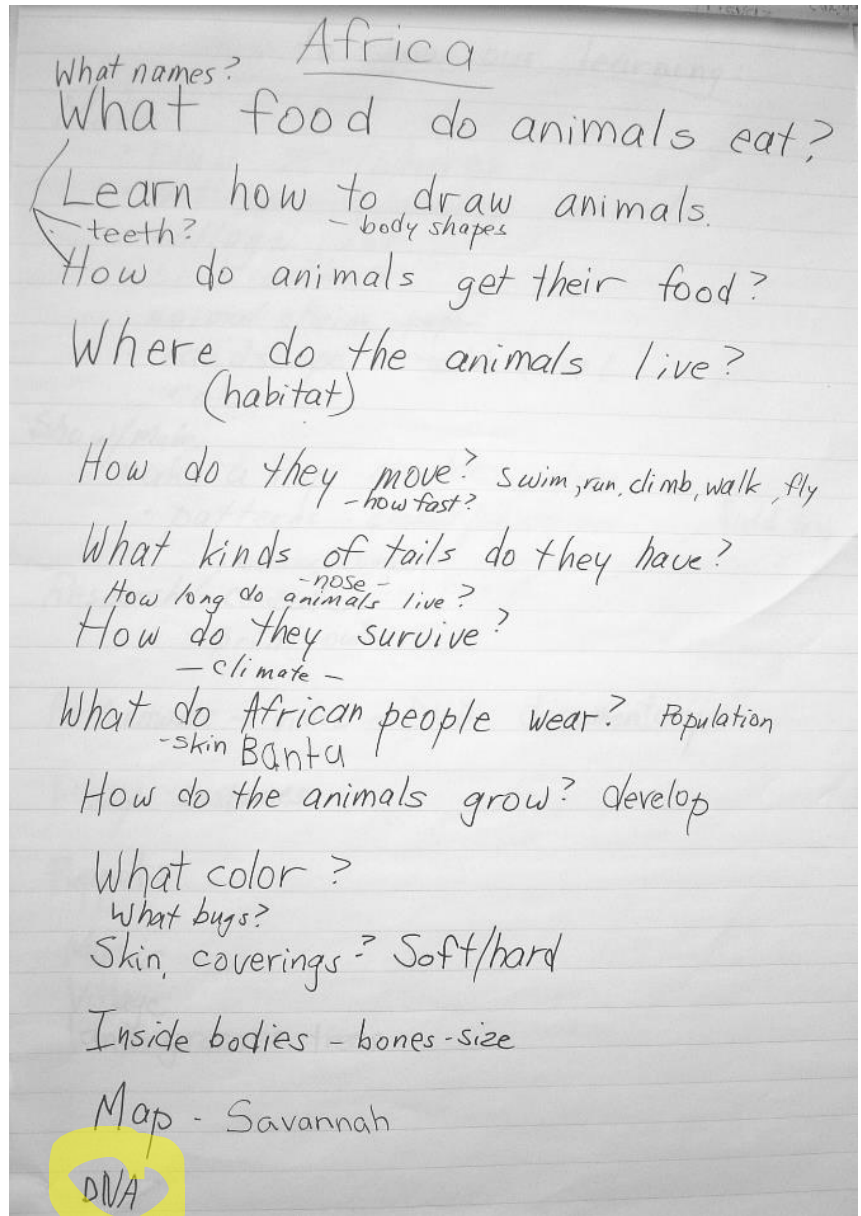 Africa
What names?
What food do animals eat?
Learn how to draw animals.
teeth? - body shapes
How do animals get their food?
Where do the animals live?
(habitat)
How do they move? swim, run, climb, walk, fly
- how fast?
What kinds of tails do they have?
- nose -
How long do animals live?
How do they survive?
- climate -
What do African people wear? Population
- skin Banta
How do the animals grow? develop
What color?
What bugs?
Skin, coverings? Soft/hard
Inside bodies - bones - size
Map - Savannah
DNA